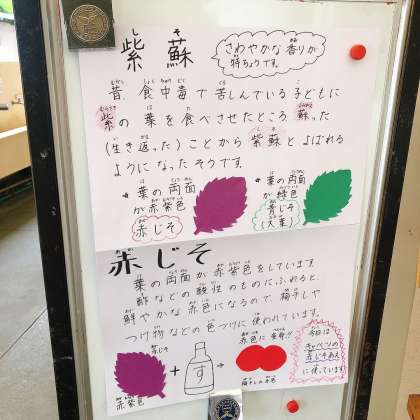 紫蘇
さわやかな香りが
特ちょうです。
昔、食中毒で苦しんでいる子どもに
紫の葉を食べさせたところ蘇った
(生き返った)ことから紫蘇とよばれる
ようになったそうです。
葉の両面
が赤紫色
赤じそ
葉の両面
が緑色
青じそ
(大葉)
赤じそ
葉の両面が赤紫色をしています。
酢などの酸性のものにふれると、
鮮やかな赤色になるので、梅干しや
つけ物などの色づけに使われています。
赤じそ
赤紫色
+
す
→
赤色に変身!!
梅干しの赤色
今日は
キャベツの
赤じそあえ
に使っています